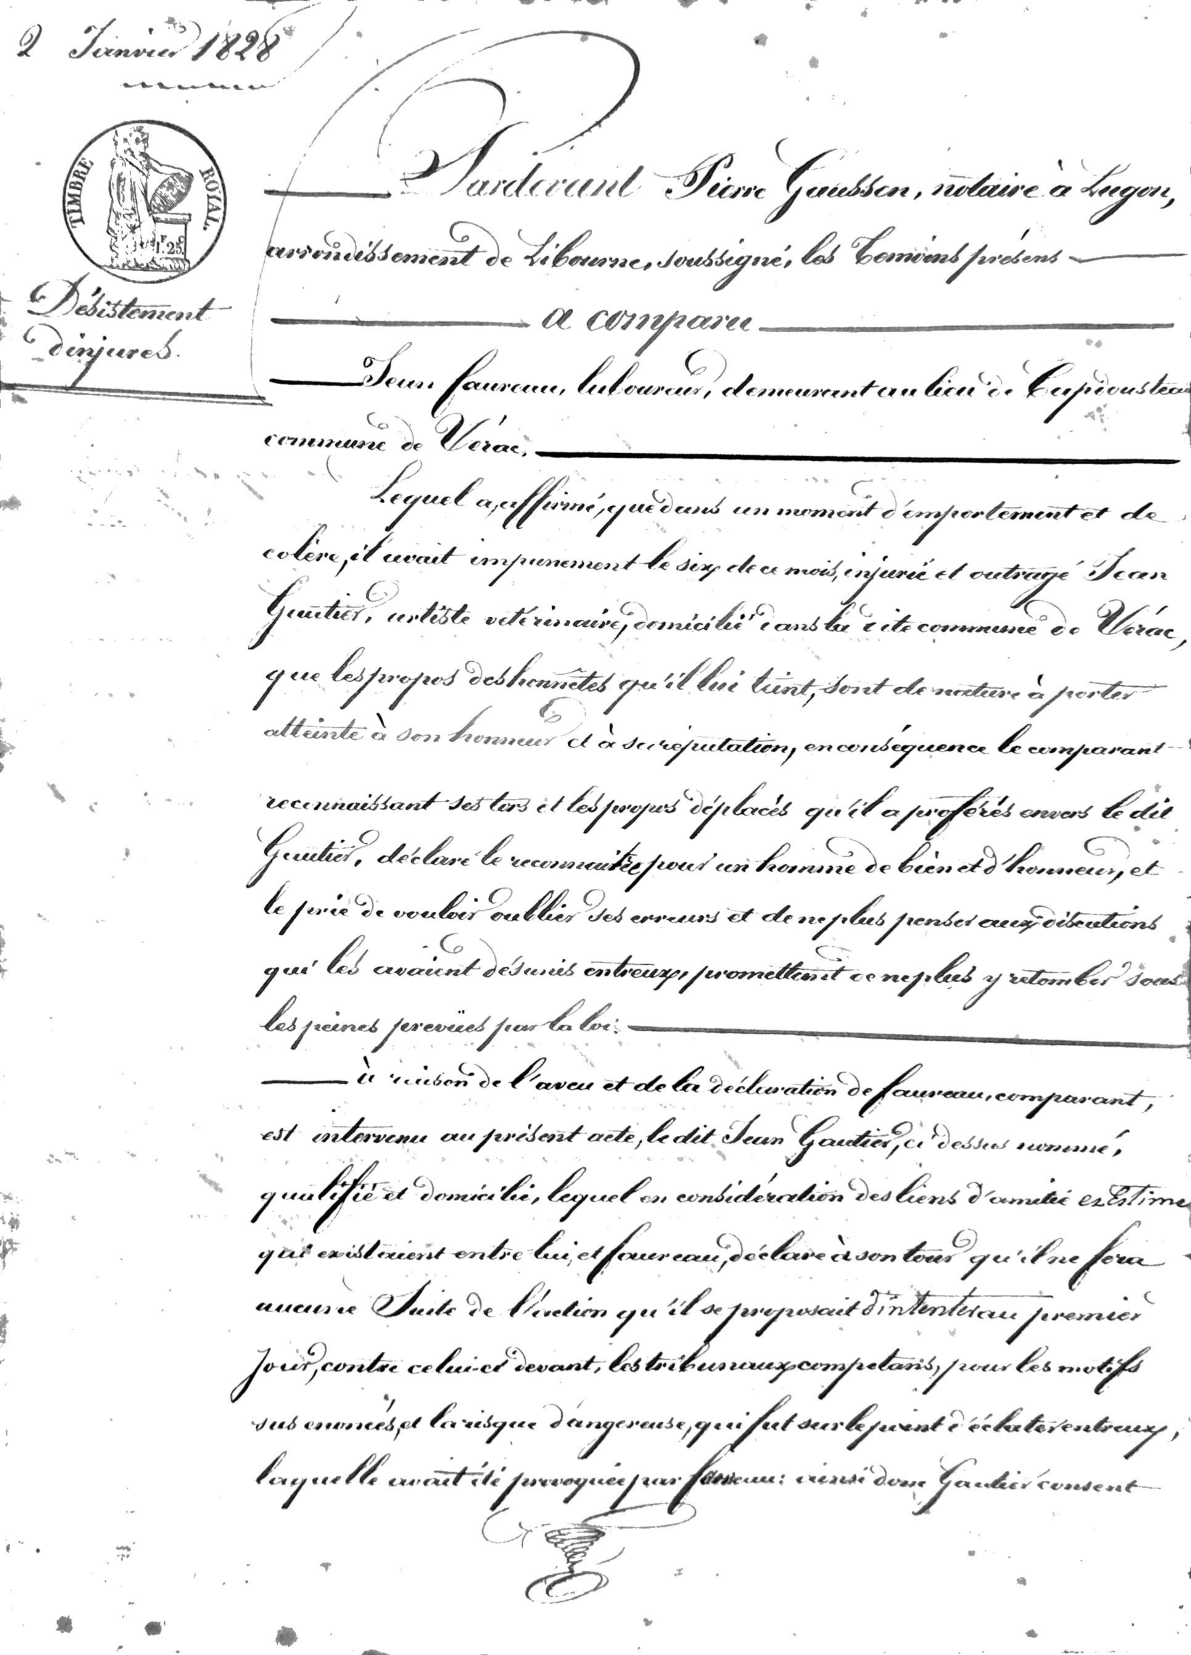 2 Janvier 1828
TIMBRE ROYAL.
1F 25C
Désistement
d'injures.
Pardevant Pierre Gaussen, notaire à Lugon,
arrondissement de Libourne, soussigné, les temoins présens
a comparu
Jean faureau, laboureur, demeurant au lieu de
commune de Vérac,
Lequel a, affirmé, que dans un moment d'emportement et de
colère, il avait impunement le six de ce mois, injurié et outragé Jean
Gautier, artiste vétérinaire, domicilié dans la dite commune de Vérac,
que les propos deshonnêtes qu'il lui tint, sont de nature à porter
atteinte à son honneur et à sa réputation, en conséquence le comparant
reconnaissant ses tors et les propos déplacés qu'il a proférés envers le dit
Gautier, déclare le reconnaitre pour un homme de bien et d'honneur, et
le prie de vouloir oublier ses erreurs et de ne plus penser aux discutions
qui les avaient désunis entreux, promettant de ne plus y retomber sous
les peines prevües par la loi.
à raison de l'aveu et de la déclaration de faureau, comparant,
est intervenu au présent acte, le dit Jean Gautier, ci dessus nommé,
qualifié et domicilié, lequel en considération des liens d'amitié et Estime
qui existaient entre lui, et faureau, déclare à son tour qu'il ne fera
aucune Suite de l'action qu'il se proposait d'intenter au premier
Jour, contre celui-ci devant, les tribunaux competans, pour les motifs
sus enoncés, et la risque dangereuse, qui fut sur le point d'éclater entreux,
laquelle avait été provoquée par faureau: ainsi donc Gautier consent